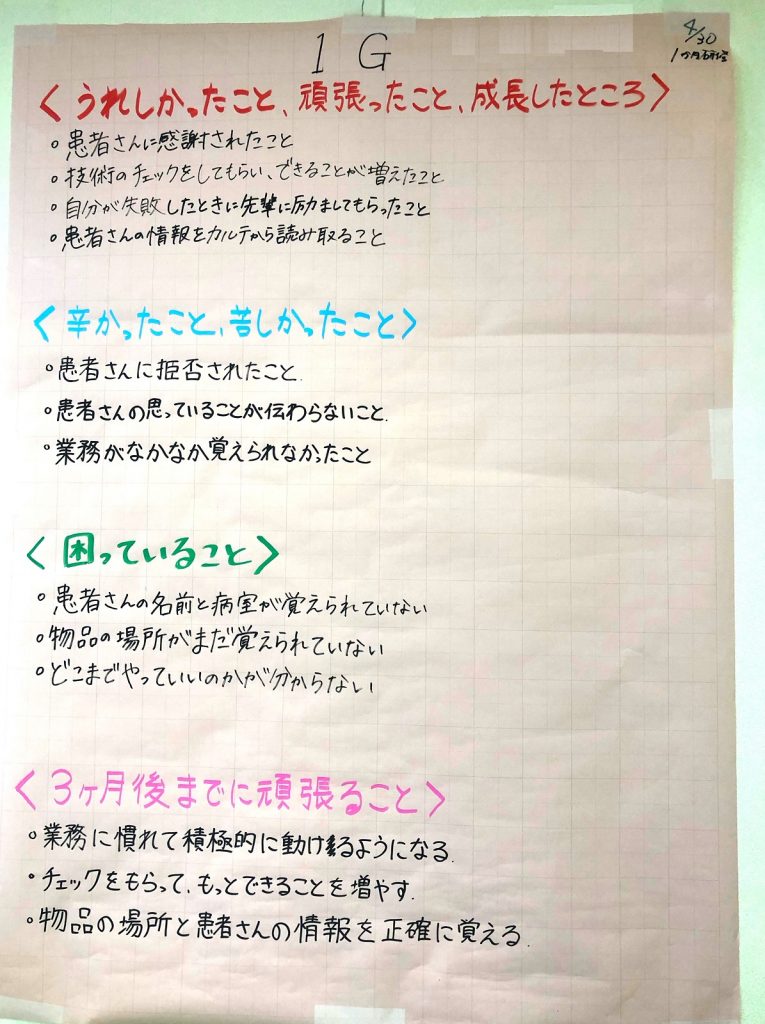 4/30
1ヶ月研修
1 G
〈うれしかったこと、頑張ったこと、成長したところ〉
。患者さんに感謝されたこと
。技術のチェックをしてもらい、できることが増えたこと
。自分が失敗したときに先輩に励ましてもらったこと
。患者さんの情報をカルテから読み取ること
〈辛かったこと、苦しかったこと〉
。患者さんに拒否されたこと.
。患者さんの思っていることが伝わらないこと.
。業務がなかなか覚えられなかったこと
〈困っていること〉
。患者さんの名前と病室が覚えられていない
。物品の場所がまだ覚えられていない
。どこまでやっていいのかが分からない
〈3ヶ月後までに頑張ること〉
。業務に慣れて積極的に動けるようになる.
。チェックをもらって、もっとできることを増やす.
。物品の場所と患者さんの情報を正確に覚える.